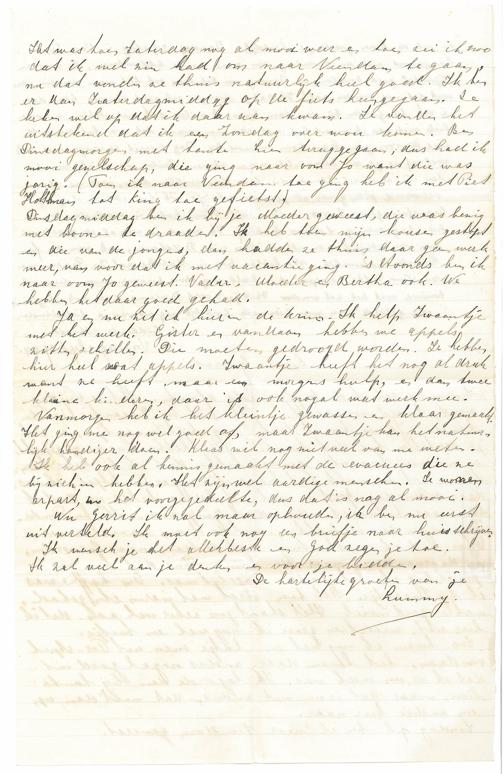 Het was toen Zaterdag nog al mooi weer en toen zei ik zoo
dat ik wel zin had om naar Veendam te gaan,
nu dat vonden ze thuis natuurlijk heel goed. Ik ben
er dan Zaterdagmiddag op de fiets heengegaan. Ze
keken wel op dat ik daar aan kwam. Ze vonden het
uitstekend dat ik een Zondag over wou komen. Ben
Dinsdagmorgen met tante hier teruggegaan, dus had ik
mooi gezelschap, die ging naar oom Jo want die was
jarig. (Toen ik naar Veendam toe ging heb ik met Piet
Holtman tot King toe gefietst.)
Dinsdagmiddag ben ik bij je Moeder geweest, die was bezig
met boonen te draaden. Ik heb toen mijn kousen gestopt
en die van de jongens, dan hadden ze thuis daar geen werk
meer van voor dat ik met vacantie ging. 's Avonds ben ik
naar oom Jo geweest. Vader, Moeder en Bertha ook. We
hebben het daar goed gehad.
Ja en nu zit ik hier in de Ik help Zwaantje
met het werk. Gister en vandaag hebben we appels
zitten schillen. Die moeten gedroogd worden. Ze hebben
hier heel wat appels. Zwaantje heeft het nog al druk
want ze heeft maar een morgens hulp, en dan twee
kleine kinderen, daar is ook nogal wat werk mee.
Vanmorgen heb ik het kleintje gewasschen en klaar gemaakt.
Het ging me nog wel goed af, maar Zwaantje kan het natuur-
lijk handiger doen. Klaas wil nog niet veel van me weten.
Ik heb ook al kennis gemaakt met de evacuees die ze
bij zich hebben. Het zijn wel aardige menschen. Ze wonen
apart, in het voorgedeelte, dus dat is nog al mooi.
Nu Gerrit ik zal maar ophouden, ik ben nu eerst
uit verteld. Ik moet ook nog een briefje naar huis schrijven
Ik wensch je het allerbeste en Gods zegen je toe.
Ik zal veel aan je denken en voor je bidden.
De hartelijke groeten van je
Lummy.